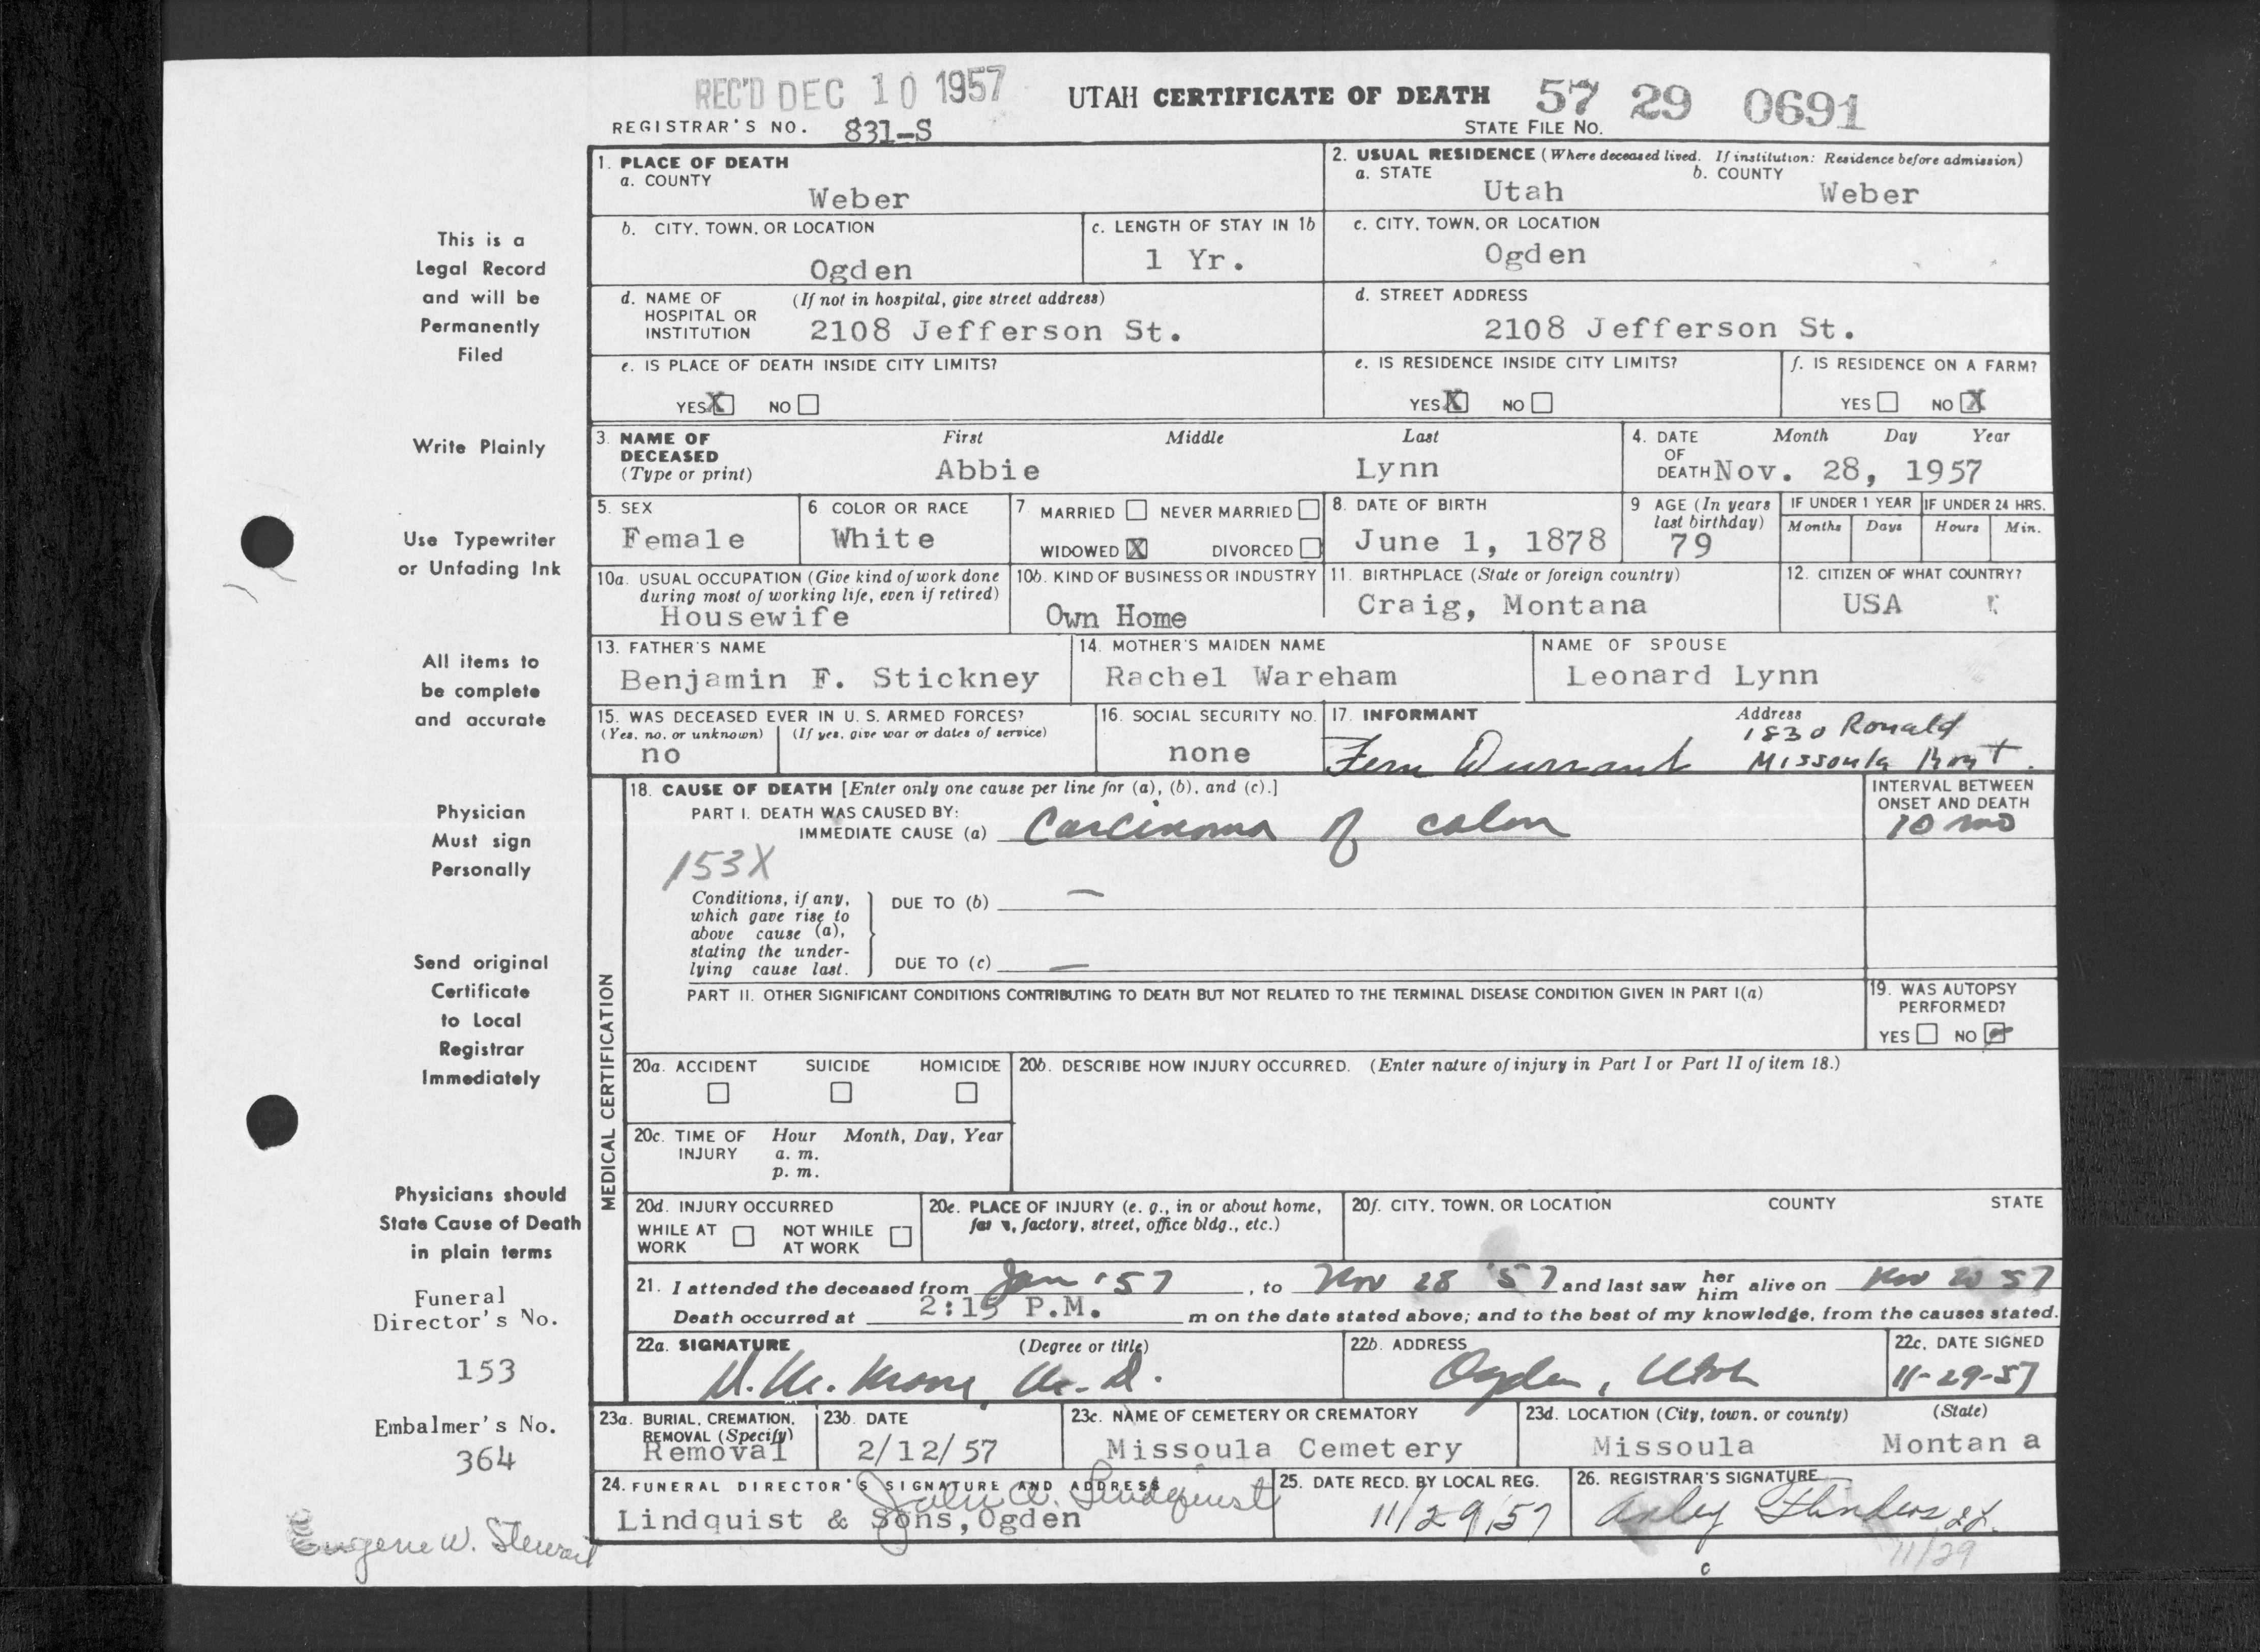 REC'D DEC 10 1957
UTAH CERTIFICATE OF DEATH 57 29 0691
REGISTRAR'S NO. 831-S STATE FILE NO.
1. PLACE OF DEATH
a. COUNTY
Weber
2. USUAL RESIDENCE (Where deceased lived. If institution: Residence before admission)
a. STATE b. COUNTY
Utah Weber
b. CITY, TOWN, OR LOCATION
Ogden
c. LENGTH OF STAY IN 1b
1 Yr.
c. CITY, TOWN, OR LOCATION
Ogden
d. NAME OF (If not in hospital, give street address)
HOSPITAL OR
INSTITUTION 2108 Jefferson St.
d. STREET ADDRESS
2108 Jefferson St.
e. IS PLACE OF DEATH INSIDE CITY LIMITS?
YES X NO
e. IS RESIDENCE INSIDE CITY LIMITS?
YES X NO
f. IS RESIDENCE ON A FARM?
YES NO X
3. NAME OF First Middle Last
DECEASED
(Type or print) Abbie Lynn
4. DATE Month Day Year
OF
DEATH Nov. 28, 1957
5. SEX
Female
6 COLOR OR RACE
White
7 MARRIED NEVER MARRIED
WIDOWED X DIVORCED
8. DATE OF BIRTH
June 1, 1878
9 AGE (In years
last birthday)
79
IF UNDER 1 YEAR IF UNDER 24 HRS.
Months Days Hours Min.
10a. USUAL OCCUPATION (Give kind of work done
during most of working life, even if retired)
Housewife
10b. KIND OF BUSINESS OR INDUSTRY
Own Home
11. BIRTHPLACE (State or foreign country)
Craig, Montana
12. CITIZEN OF WHAT COUNTRY?
USA
13. FATHER'S NAME
Benjamin F. Stickney
14. MOTHER'S MAIDEN NAME
Rachel Wareham
NAME OF SPOUSE
Leonard Lynn
15. WAS DECEASED EVER IN U. S. ARMED FORCES?
(Yes, no, or unknown) (If yes, give war or dates of service)
no
16. SOCIAL SECURITY NO.
none
17. INFORMANT Address
1830 Ronald
Fern Durrant Missoula Mont.
18. CAUSE OF DEATH [Enter only one cause per line for (a), (b), and (c).]
PART I. DEATH WAS CAUSED BY:
IMMEDIATE CAUSE (a) Carcinoma of colon
INTERVAL BETWEEN
ONSET AND DEATH
10 mo
153X
Conditions, if any,
which gave rise to
above cause (a),
stating the under-
lying cause last.
DUE TO (b) —
DUE TO (c) —
PART II. OTHER SIGNIFICANT CONDITIONS CONTRIBUTING TO DEATH BUT NOT RELATED TO THE TERMINAL DISEASE CONDITION GIVEN IN PART I(a)
19. WAS AUTOPSY
PERFORMED?
YES NO
MEDICAL CERTIFICATION
20a. ACCIDENT SUICIDE HOMICIDE
20b. DESCRIBE HOW INJURY OCCURRED. (Enter nature of injury in Part I or Part II of item 18.)
20c. TIME OF Hour Month, Day, Year
INJURY a. m.
p. m.
20d. INJURY OCCURRED
WHILE AT NOT WHILE
WORK AT WORK
20e. PLACE OF INJURY (e. g., in or about home,
factory, street, office bldg., etc.)
20f. CITY, TOWN, OR LOCATION COUNTY STATE
21. I attended the deceased from Jan '57, to Nov 28 '57 and last saw her him alive on Nov 57
Death occurred at 2:15 P.M. m on the date stated above; and to the best of my knowledge, from the causes stated.
22a. SIGNATURE (Degree or title)
M.D.
22b. ADDRESS
Ogden, Utah
22c. DATE SIGNED
11-29-57
23a. BURIAL, CREMATION,
REMOVAL (Specify)
Removal
23b. DATE
2/12/57
23c. NAME OF CEMETERY OR CREMATORY
Missoula Cemetery
23d. LOCATION (City, town, or county) (State)
Missoula Montana
24. FUNERAL DIRECTOR'S SIGNATURE AND ADDRESS
John A. Lindquist
Lindquist & Sons, Ogden
25. DATE RECD. BY LOCAL REG.
11/29/57
26. REGISTRAR'S SIGNATURE
Flinders
11/29
This is a
Legal Record
and will be
Permanently
Filed
Write Plainly
Use Typewriter
or Unfading Ink
All items to
be complete
and accurate
Physician
Must sign
Personally
Send original
Certificate
to Local
Registrar
Immediately
Physicians should
State Cause of Death
in plain terms
Funeral
Director's No.
153
Embalmer's No.
364
Eugene W. Stewart